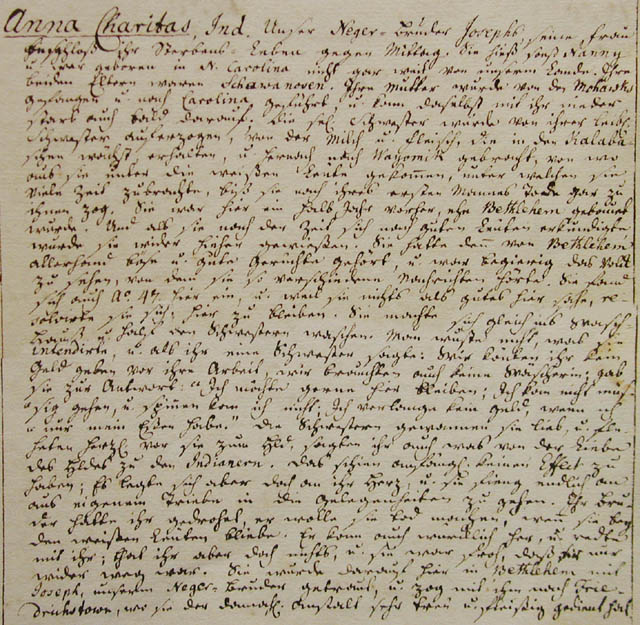 Anna Charitas, Ind. Unser Neger-Bruder Josephs seine Frau
beschloß ihr Sterbens-Leben gegen Mittag. Sie hieß sonst Nanny
u. war geboren in N. Carolina nicht gar weit von unserm Lande. Ihre
beiden Eltern waren Schawanosen. Ihre Mutter wurde von den Mohawks
gefangen u. nach Carolina geführt, u. kam daselbst mit ihr nieder
starb auch bald darauf. Die sel. Schwester wurde von ihrer
Schwester auferzogen, von der Milch u. Fleisch, die in den Kalaba
schen wächst, erhalten, u. hernach nach Wajomik gebracht, von wo
aus sie unter die weißen Leute gekommen, unter welchen sie
viele Zeit zubrachte, biß sie nach ihres ersten Mannes Tode gar zu
ihnen zog. Sie war hier ein halb Jahr vorher, ehe Bethlehem gebauet
wurde. Und als sie nach der Zeit sich nach guten Leuten erkundigte
wurde sie wider hieher gewiesen. Sie hatte denn von Bethlehem
allerhand böse u. gute Gerüchte gehört, u. war begierig das Volk
zu sehen, von dem sie so verschiedene Nachrichten hörte. Sie fand
sich auch Ao. 47. hier ein, u. weil sie nichts als gutes hier sahe, re-
solvirte sie sich, hier zu bleiben. Sie machte sich gleich ins Wasch-
Hauß u. half den Schwestern waschen. Man wuste nicht, was sie
intendirte, u. als ihr eine Schwester sagte: Wir können ihr kein
Geld geben vor ihre Arbeit, wir brauchten auch keine Wäscherin; gab
sie zur Antwort: "Ich möchte gerne hier bleiben; Ich kan nicht müs-
"sig gehen, u. spinnen kan ich nicht; Ich verlange kein Geld, wenn ich
"nur mein Eßen habe." Die Schwestern gewannen sie lieb, u. fle-
heten herzl. vor sie zum Hld, sagten ihr auch was von der Liebe
des Hldes zu den Indianern. Das schien anfängl. keinen Effect zu
haben; Es legte sich aber doch an ihr Herz, u. sie fieng endlich an
aus eigenem Triebe in die Gelegenheiten zu gehen. Ihr Bru-
der hatte ihr gedrohet, er wolle sie tod machen, wenn sie bey
den weißen Leuten bliebe. Er kam auch würcklich her, u. redete
mit ihr; that ihr aber doch nichts, u. sie war froh, daß er nur
wider weg war. Sie wurde darauf hier in Bethlehem mit
Joseph, unserm Neger-Bruder getraut, u. zog mit ihm nach Frie-
drichstown, wo sie der damahl. Anstalt sehr treu u. fleißig gedient hat.